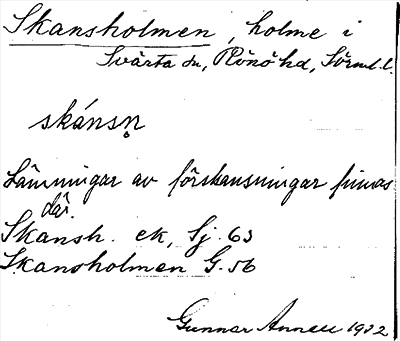 Skansholmen, holme i
Svärta sn, Rönö hd, Sörml. l.
skánsn̥
Lämningar av förskansningar finnas
där.
Skansh. ek, Sj. 63
Skansholmen G. 56
Gunnar 1932